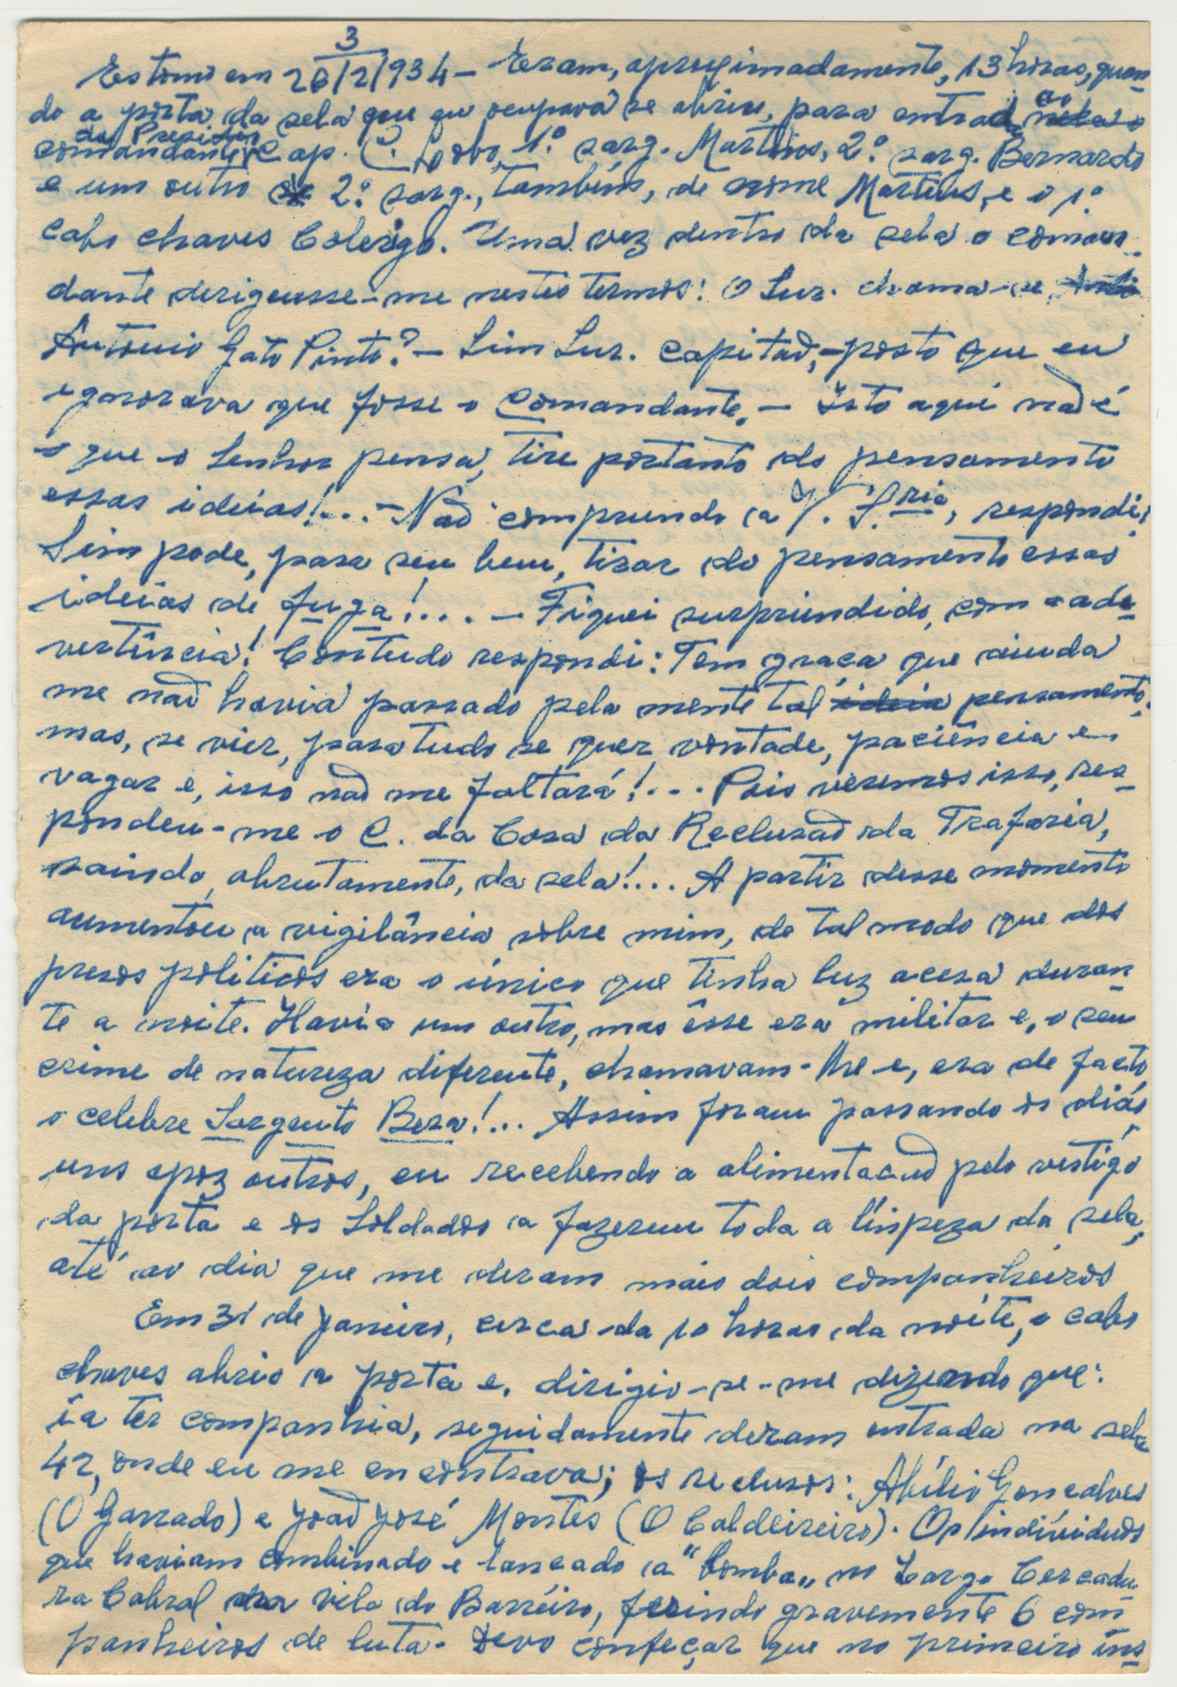 3
Estamos em 26/2/934 - Eram, aproximadamente, 13 horas, quan-
do a porta da sela que eu ocupava se abriu, para entrar ao
comandante do Presidio Cap. C. Lobo, 1.º sarg. Martins, 2.º sarg. Bernardo
e um outro 2.º sarg., também, de nome Martins, e o 1.º
cabo chaves Colerigo. Uma vez dentro da sela o coman-
dante derigeusse-me nestes termos: O Snr. chama-se
Antonio Gato Pinto? - Sim Snr. Capitaõ, - posto que eu
ignorava que fosse o Comandante. - Isto aqui naõ é
o que o Senhor pensa, tire portanto do pensamento
essas ideias!... - Naõ comprendo a V. S.ria, respondi:
Sim pode, para seu bem, tirar do pensamento essas
ideias de fuga!... - Fiquei surpriendido, com a ade-
vertência! Contudo respondi: Tem graça que ainda
me naõ havia passado pela mente tal ideia pensamento,
mas, se vier, para tudo se quer vontade, paciência e
vagar e, isso naõ me faltará!... Pois veremos isso, res-
pondeu-me o C. da Casa da Reclusaõ da Trafaria,
saindo, abrutamente, da sela!... A partir desse momento
aumentou a vigilância sobre mim, de tal modo que dos
presos politicos era o único que tinha luz acesa duran-
te a noite. Havia um outro, mas êsse era militar e, o seu
crime de natureza diferente, chamavam-lhe e, era de facto
o celebre Sargento Bera!... Assim foram passando os diás
uns apoz outros, eu recebendo a alimentacaõ pelo vestigo
da porta e os Soldados a fazerem toda a limpeza da sela,
até ao dia que me deram mais dois companheiros
Em 31 de Janeiro, cerca da 10 horas da noite, o cabo
chaves abrio a porta e, dirigio-se-me dizendo que:
ía ter companhia, seguidamente deram entrada na sela
42, onde eu me encontrava; os reclusos: Abílio Goncalves
(O Garrado) e Joaõ José Montes (O Caldeireiro). Os indíviduos
que haviam combinado e lancado a "bomba" no Largo Cercadu
ra Cabral na vila do Barreiro, ferindo gravemente 6 com
panheiros de luta. Devo confeçar que no primeiro ins